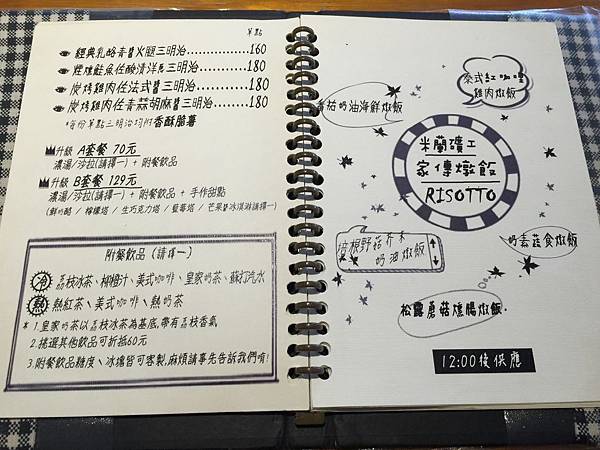 單點
經典乳酪青醬火腿三明治..............160
煙燻鮭魚佐酸漬洋蔥三明治..........180
炭烤雞肉佐法式醬三明治..........180
炭烤雞肉佐青蒜胡麻醬三明治........180
*每份單點三明治均附香酥脆薯
升級 A套餐 70元
濃湯/沙拉(請擇一) + 附餐飲品
升級 B套餐 129元
濃湯/沙拉(請擇一) + 附餐飲品 + 手作甜點
(鮮奶酪 / 檸檬塔 / 生巧克力塔 / 藍莓塔 / 芒果冰淇淋請擇一)
附餐飲品 (請擇一)
冷 荔枝冰茶、柳橙汁、美式咖啡、皇家奶茶、蘇打汽水
熱 熱紅茶、美式咖啡、熱奶茶
* 1.皇家奶茶以荔枝冰茶為基底,帶有荔枝香氣
2.挑選其他飲品可折抵60元
3.附餐飲品糖度、冰塊皆可客製,麻煩請事先告訴我們唷!
泰式紅咖哩
雞肉燉飯
香菇奶油海鮮燉飯
米蘭礦工
家傳燉飯
RISOTTO
奶素蔬食燉飯
培根野菇芥末
奶油燉飯
松露蘑菇燻腸燉飯.
12:00後供應